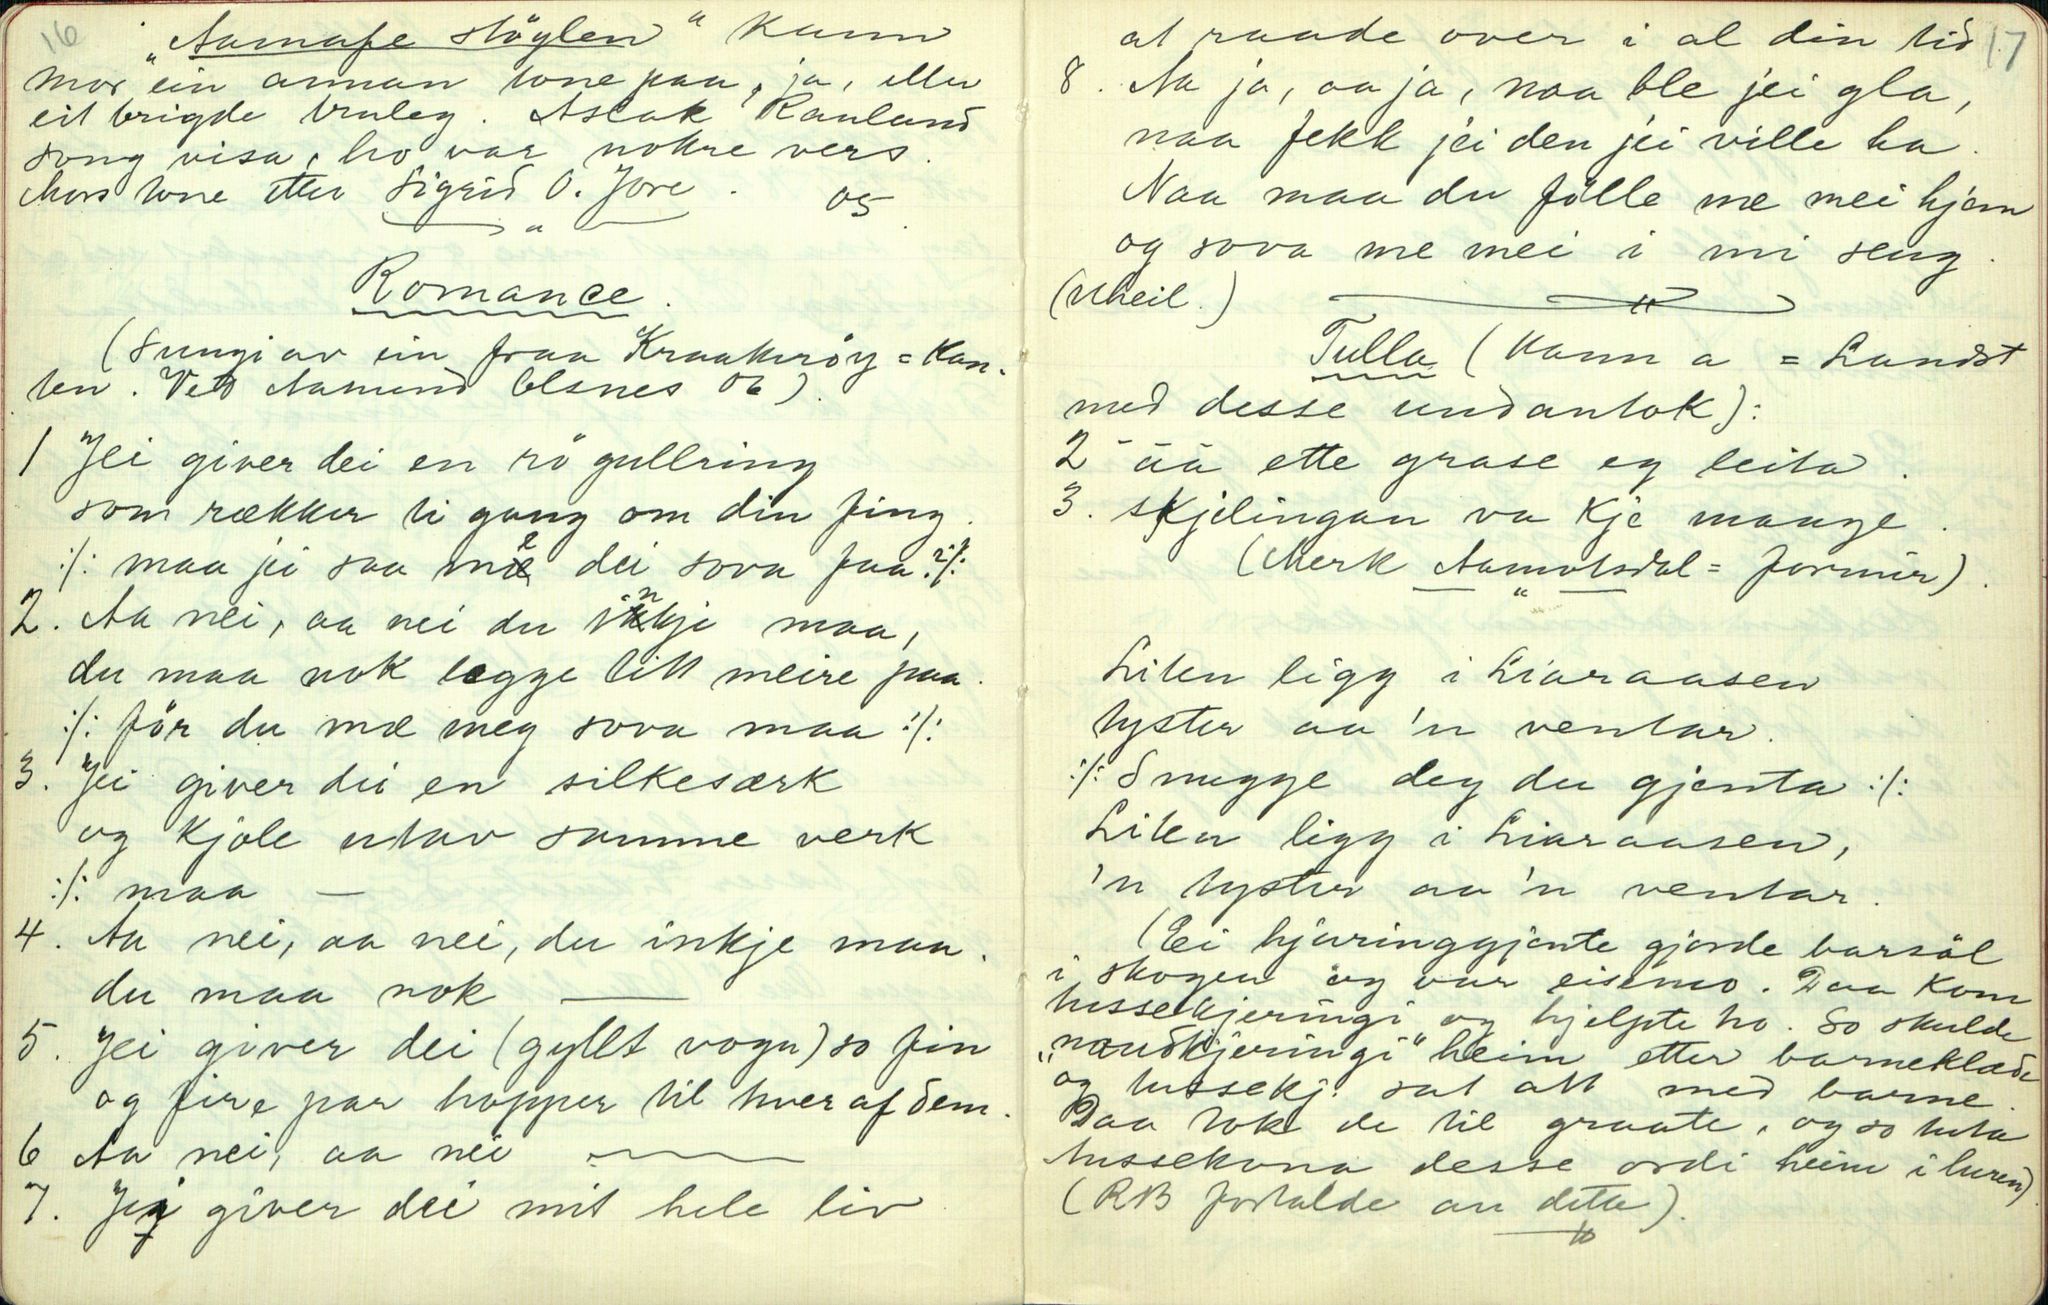 16
"Aamase stöylen" kann
mor ein annan tone paa, ja, eller
eit brigde truleg. Aslak Rauland
song visa, ho var nokre vers.
Mors tone etter Sigrid O. Jore. 05
Romance.
(Sungi av ein fraa Kraakerøy = Kan-
ten. Ved Aamund Olsnes 06).
1 Jei giver dei en rö gullring
som rækker ti gang om din fing.
:/: maa jei saa me dei sova faa? :/:
2. Aa nei, aa nei du inkje maa,
du maa nok legge litt meire paa.
:/: för du mæ meg sova maa :/:
3. Jei giver dei en silkesærk
og kjole utav samme verk
:/: maa —
4. Aa nei, aa nei, du inkje maa.
du maa nok —
5. Jei giver dei (gyllt vogn) so fin
og fire par hopper til hver af dem.
6 Aa nei, aa nei —
7. Jei giver dei mit hele liv
17
at raade over i al din tid.
8. Aa ja, aa ja, naa ble jei gla,
naa fekk jei den jei ville ha.
Naa maa du fölle me mei hjem
og sova me mei i mi seng.
(Uheil.)
Tulla (Kann a = Landst
med desse undantok):
2 ää ette grase eg leita.
3. skjelingan va kje maange.
(Merk Aamotsdal = formur).
Liten ligg i Liaraasen
tyster aa 'n ventar.
:/: Snugge deg du gjenta :/:
Liten ligg i Liaraasen,
'n tyster aa 'n ventar.
(Ei hjuringgjente gjorde barsöl
i skogen og var eismo. Daa kom
tussekjeringi og hjelpte ho. So skulde
"naudkjeringi" heim etter barneklæde
og tussekj. sat att med barne.
Daa tok de til graate, og so tuta
tussekona desse ordi heim i luren)
(RB fortalde au dette).